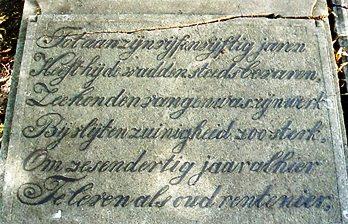 Tot aan zijn vyf en vyftig jaren
Heeft hij de wadden steeds bevaren,
Zeehonden vangen was zyn werk
By slyten zuinigheid zoo sterk.
Om zes en dertig jaar alhier
Te leven als oud rentenier;